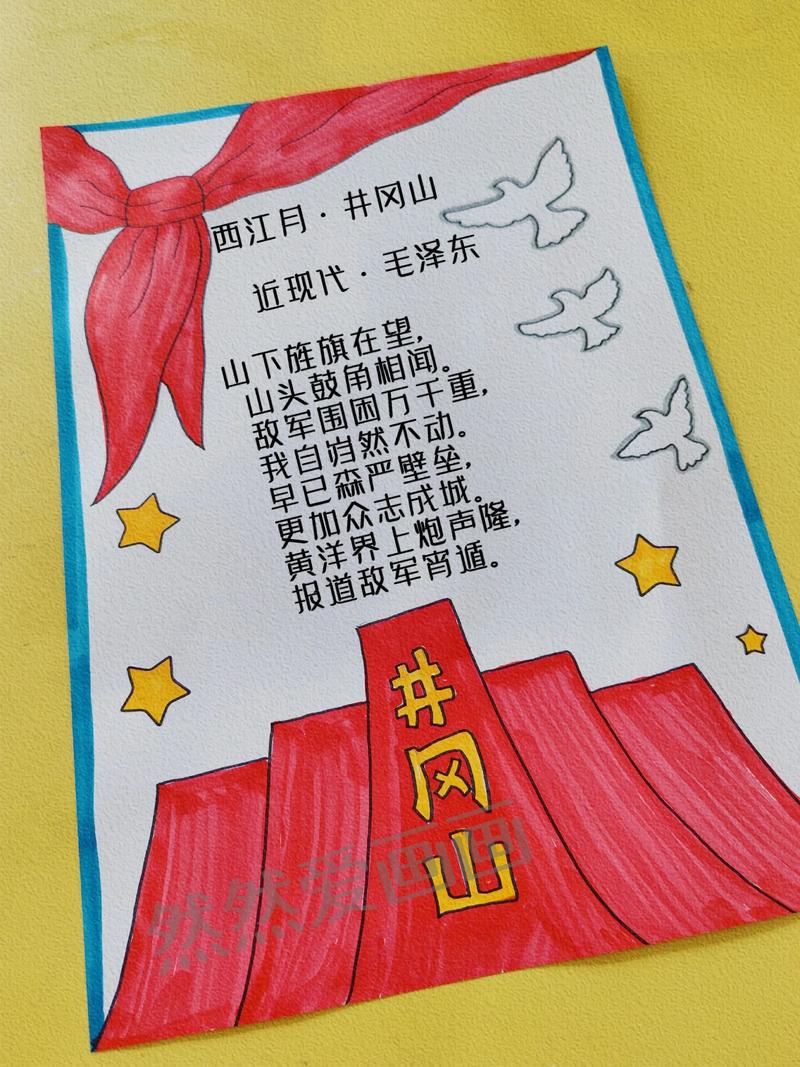 西江月·井冈山
近现代·毛泽东
山下旌旗在望，
山头鼓角相闻。
敌军围困万千重，
我自岿然不动。
早已森严壁垒，
更加众志成城。
黄洋界上炮声隆，
报道敌军宵遁。
井冈山
然然爱画画